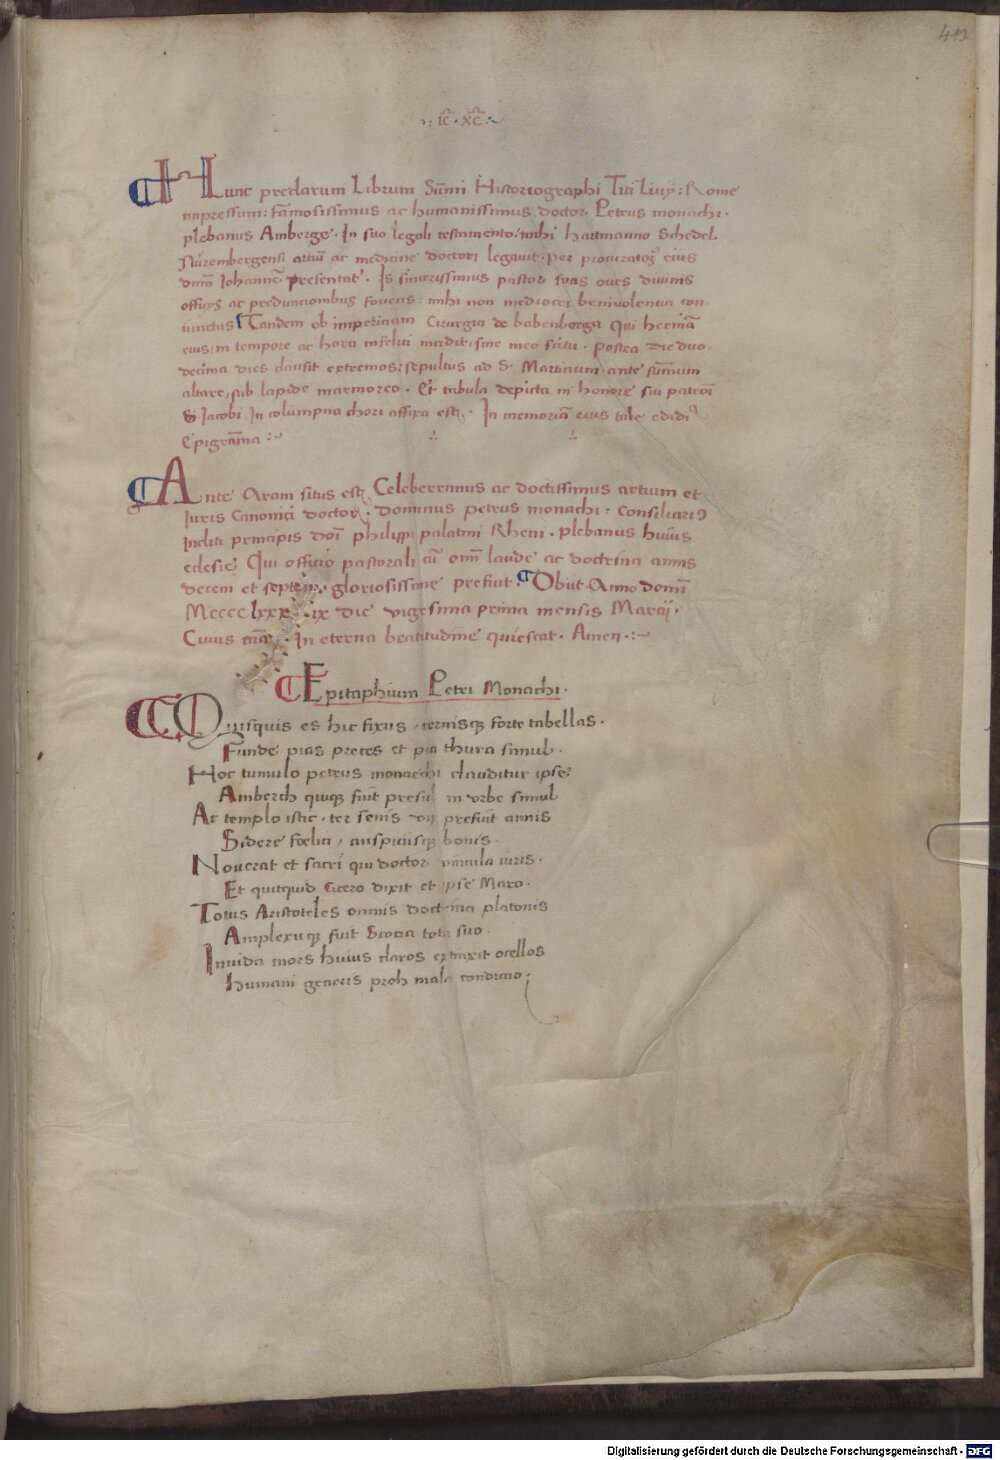 413
.: IC · XC :.
Hunc preclarum Librum Sūmi Historiographi Titi Livÿ: Rome
impressum: famosissimus ac humanissimus doctor Petrus monachi ·
plebanus Amberge · In suo legali testamento: mihi Hartmanno Schedel
Nürembergensi artiū ac medicine doctori legavit · per procuratorē eius
dnm̄ Johannē presentat · Is sincerissimus pastor suas oves divinis
officijs ac predicacionibus fovens: mihi non mediocri benivolencia con,
iunctus Tandem ob impericiam Cirurgia de babenberga Qui herniā
eius, in tempore ac hora infelici incidit, sine meo scitu · postea die duo,
decima dies clausit extremos: sepultus ad S · Martinum ante sumum
altare, sub lapide marmoreo · Et tabula depicta in honore sui patroni
S. Jacobi In columpna chori affixa est · In memoriā eius tale edidi
Epigrāma :
Ante Aram situs est Celeberrimus ac doctissimus artium et
Juris Canonici doctor · dominus petrus monachi: Consiliari9
incliti principis dn̄i philippi palatini Rheni · plebanus huius
eclesie Qui officio pastorali cū omī laude ac doctrina annis
decem et septem gloriosissime prefuit · Obiit Anno domī
Mcccclxxx ix die vigesima prima mensis Marcij ·
Cuius aīa In eterna beatitudine quiescat · Amen ·:
Epitaphium Petri Monachi ·
Quisquis es hic fixus, cernisq3 forte tabellas ·
Funde pias preces et pia thura simul ·
Hoc tumulo petrus monachi clauditur ipse
Amberch quiq3 fuit presul in urbe simul
Ac templo istic · ter senis vix prefuit annis
Sidere foelici, auspiciisq3 bonis ·
Noverat et sacri qui doctor vincula iuris ·
Et quitquid Cicero dixit et ipse Maro ·
Totus Aristoteles omnis doctrina platonis
Amplexuq3 fuit Scocia tota suo ·
Invida mors huius claros extinxit ocellos
Humani generis proh mala condicio ·
Digitalisierung gefördert durch die Deutsche Forschungsgemeinschaft - DFG